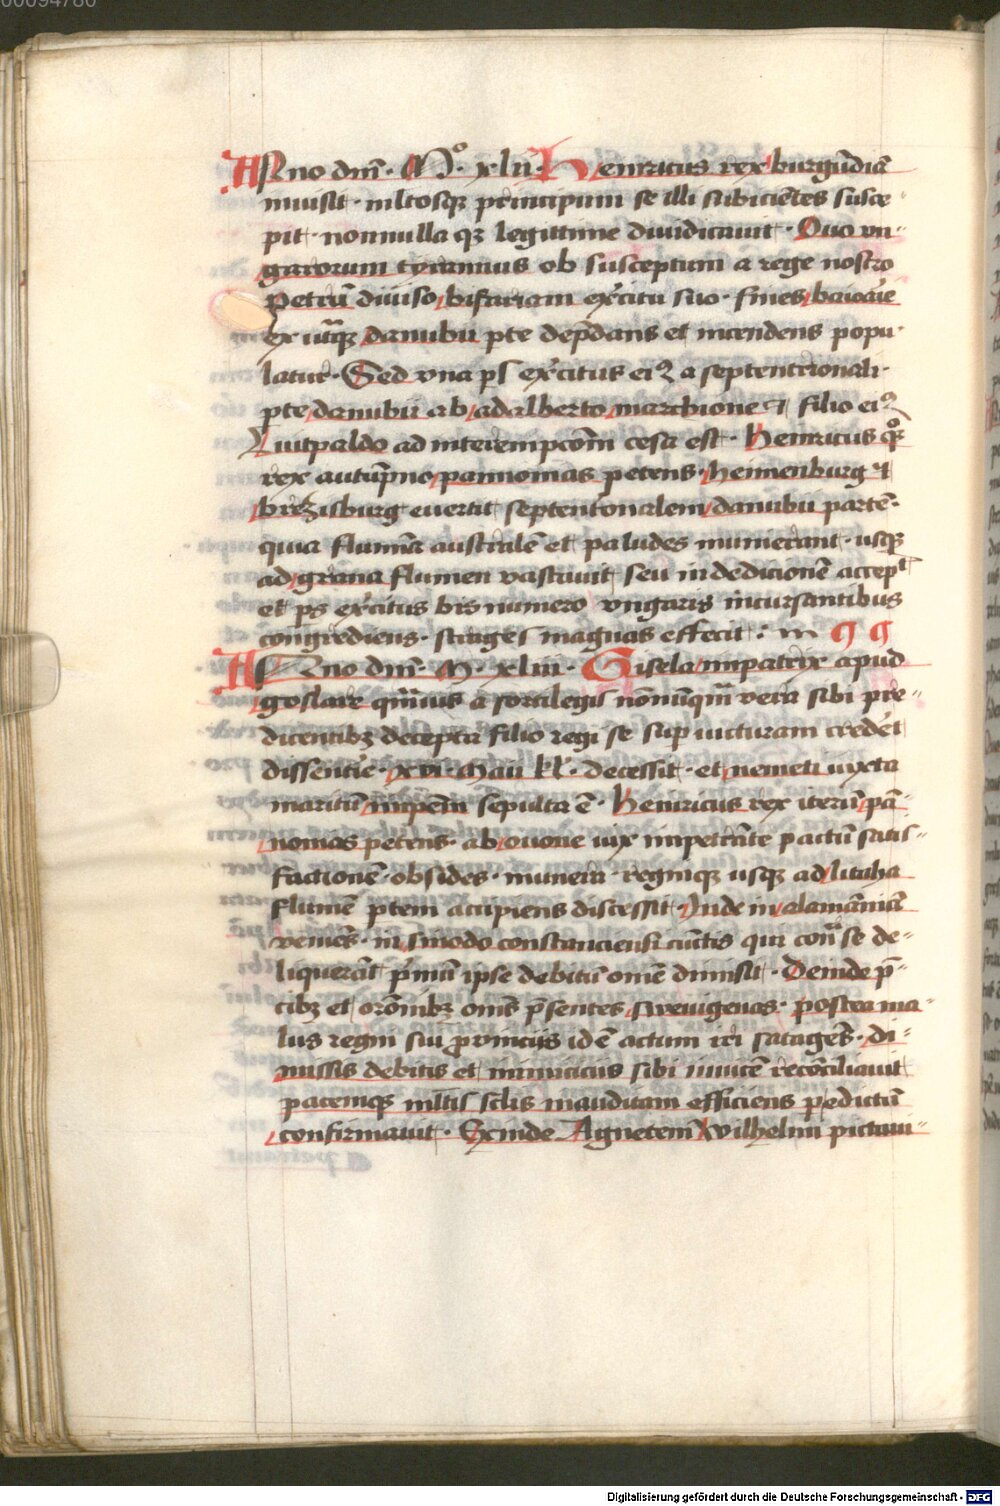 00094780
Anno dnī · M⁰· xlii · Henricus rex burgūdiā
inuisit · mltosqꝫ principum se illi subiciētes susce-
pit · nonnulla qꝫ legittime diuidicauit · Quo un-
garorum tyrannus ob susceptum a rege nostro
Petrū diuiso bifariam exꝰcitu suo · fines baioarie
ex utraqꝫ danubii pte depdans et incendens popu-
latur · Sed vna ps exꝰcitus eiꝰ a septentrionali-
pte danubii ab adalberto marchione ⁊ filio eiꝰ
Liutpaldo ad interempcōm cesa est · Henricus qꝫ
rex autūpno pannonias petens · heimenburg ⁊
brezisburg euertit septentonalem danubii partē ·
quia flumīa australē et paludes munierant · usqꝫ
ad grana flumen vastauit seu in dedicionē accepᵗ
et ps exꝰcitus bis numero vngaris incursantibus
congrediens · strages magnas effecit :
Anno dnī · M · xliii · Gisela impatrix apud
goslare qmuis a sortilegis nōnūqm vera sibi pre-
dicentibꝫ decepta filio regi se supuicturam credēt
dissentie · xvi · Maii kl · decessit · et nemeti iuxta
maritū impem sepulta ē · Henricus rex iterū pā-
nonias petens · ab ouone uix impetrāte pactū satis-
factionē · obsides · munera · regniqꝫ usqꝫ ad litaha
flumē ptem accipiens discessit · Inde in alamānīā
veniēs · in sinodo constanciensi cūctis qui conͣ se de-
liquerāt pmū ipse debitū omē dimisit · Deinde p̄-
cibꝫ et orōnibꝫ oms p̄sentes sweuigenas · postea in a-
liis regni sui prouinciis idē actum iri satagēs · di-
missis debitis et inimiciciis sibi inuicē recōciliauit
pacemqꝫ mltis sclis inauditam efficiens p edictū
confirmauit · Exinde Agnetem wilhelmi pictaui-
Digitalisierung gefördert durch die Deutsche Forschungsgemeinschaft - DFG